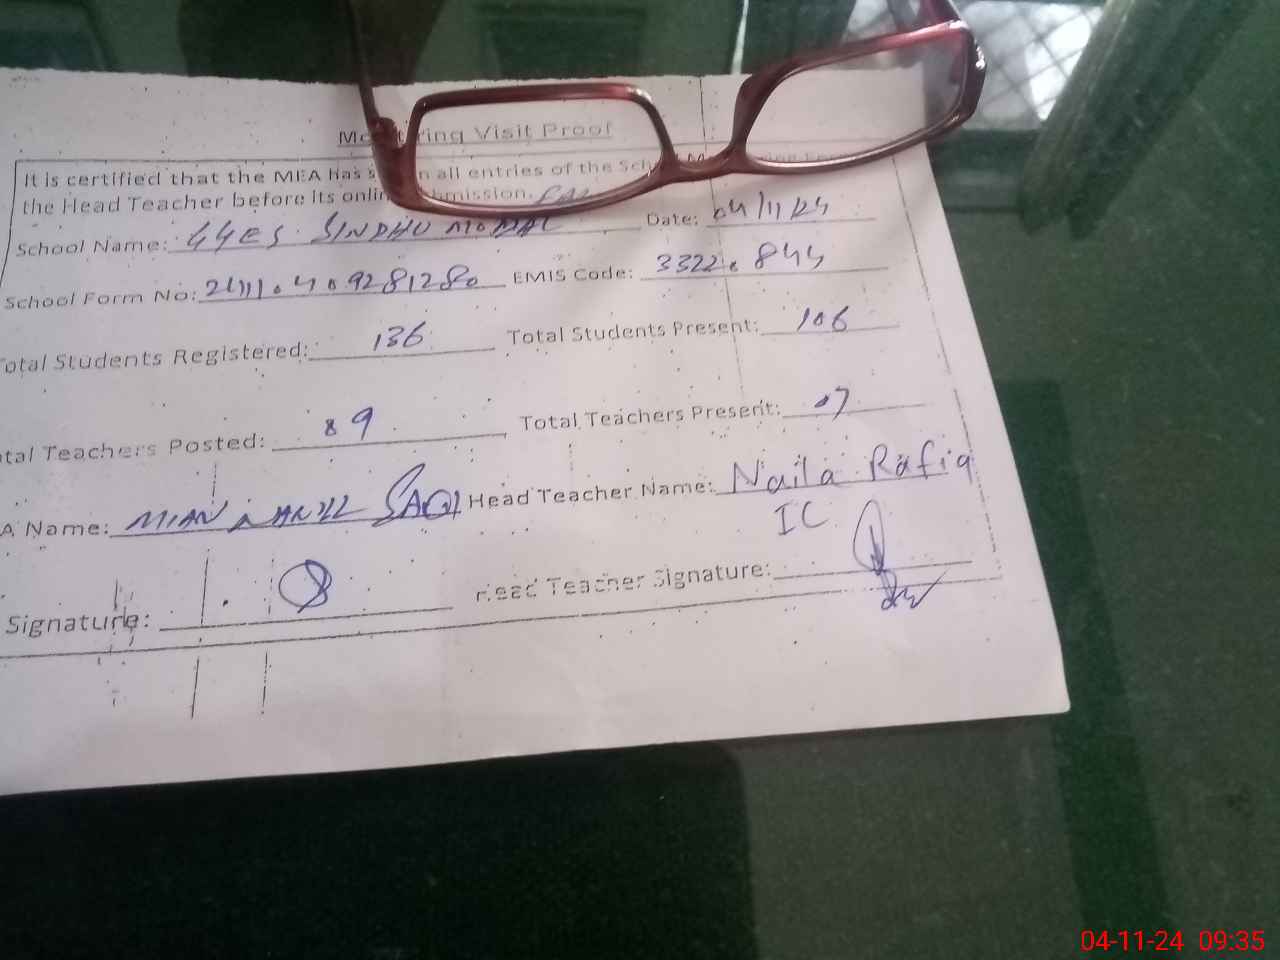 Mo t ring Visit Proof
It is certified that the MEA has s n all entries of the Sch
the Head Teacher before its onlin bmission.
School Name: GGES SINDHU MODAL Date: 04/11/24
School Form No: EMIS Code: 33220844
otal Students Registered: 136 Total Students Present: 106
tal Teachers Posted: 09 Total Teachers Present: 07
A Name: MIAN SAQI Head Teacher Name: Naila Rafiq
IC
Signature: Head Teacher Signature:
04-11-24 09:35